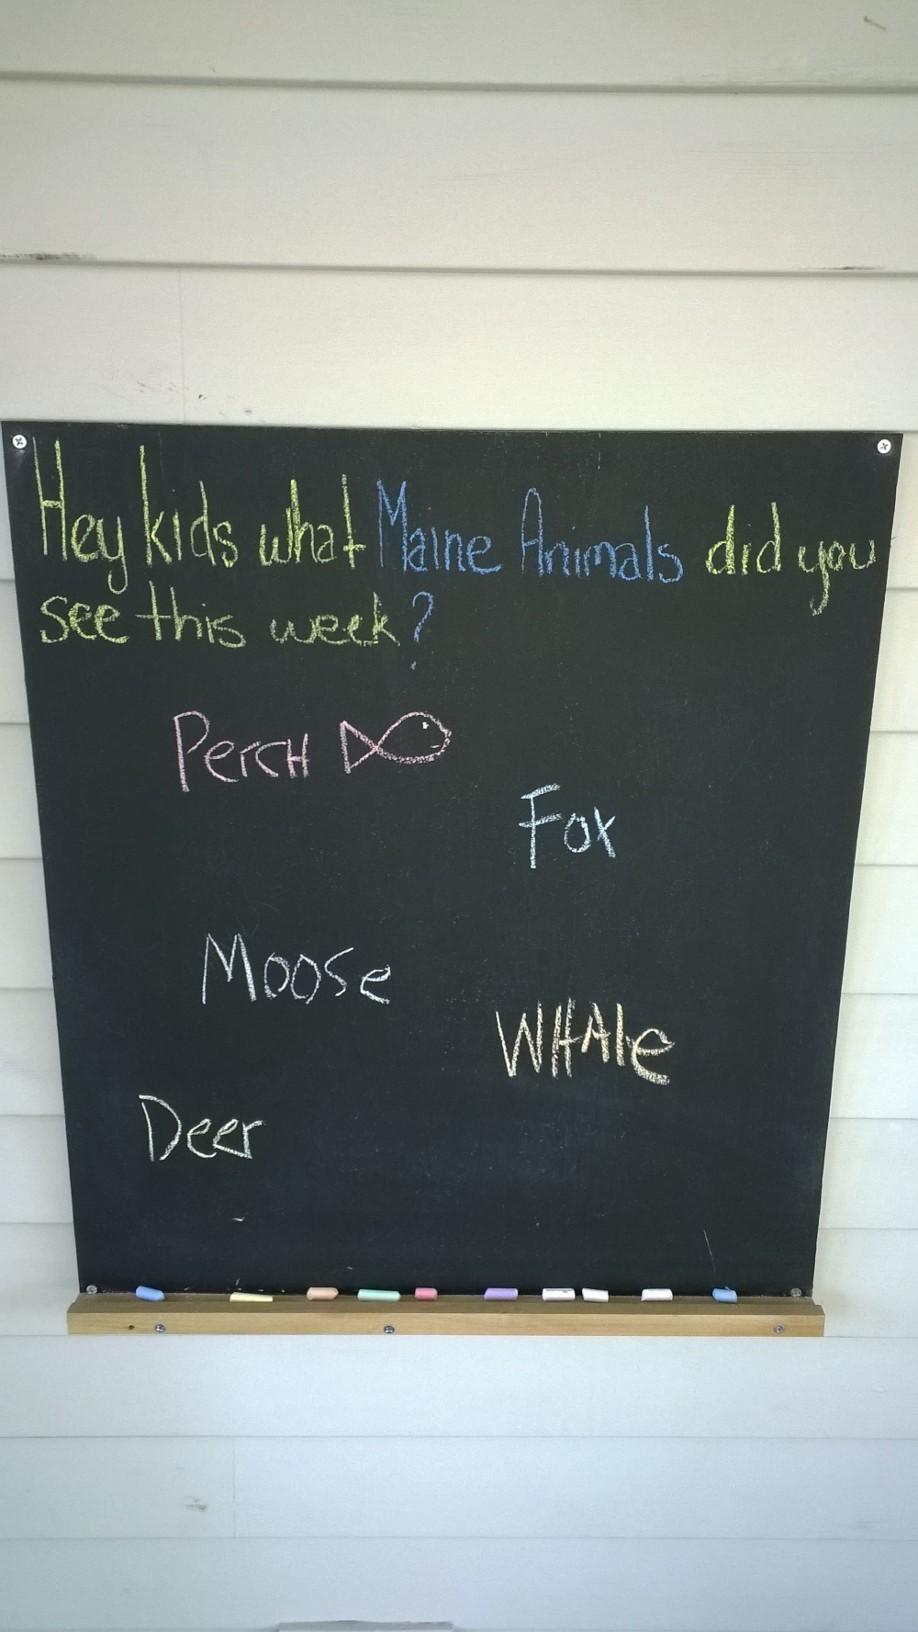 Hey kids what Maine Animals did you
see this week?
PercH
Fox
Moose
WHAle
Deer